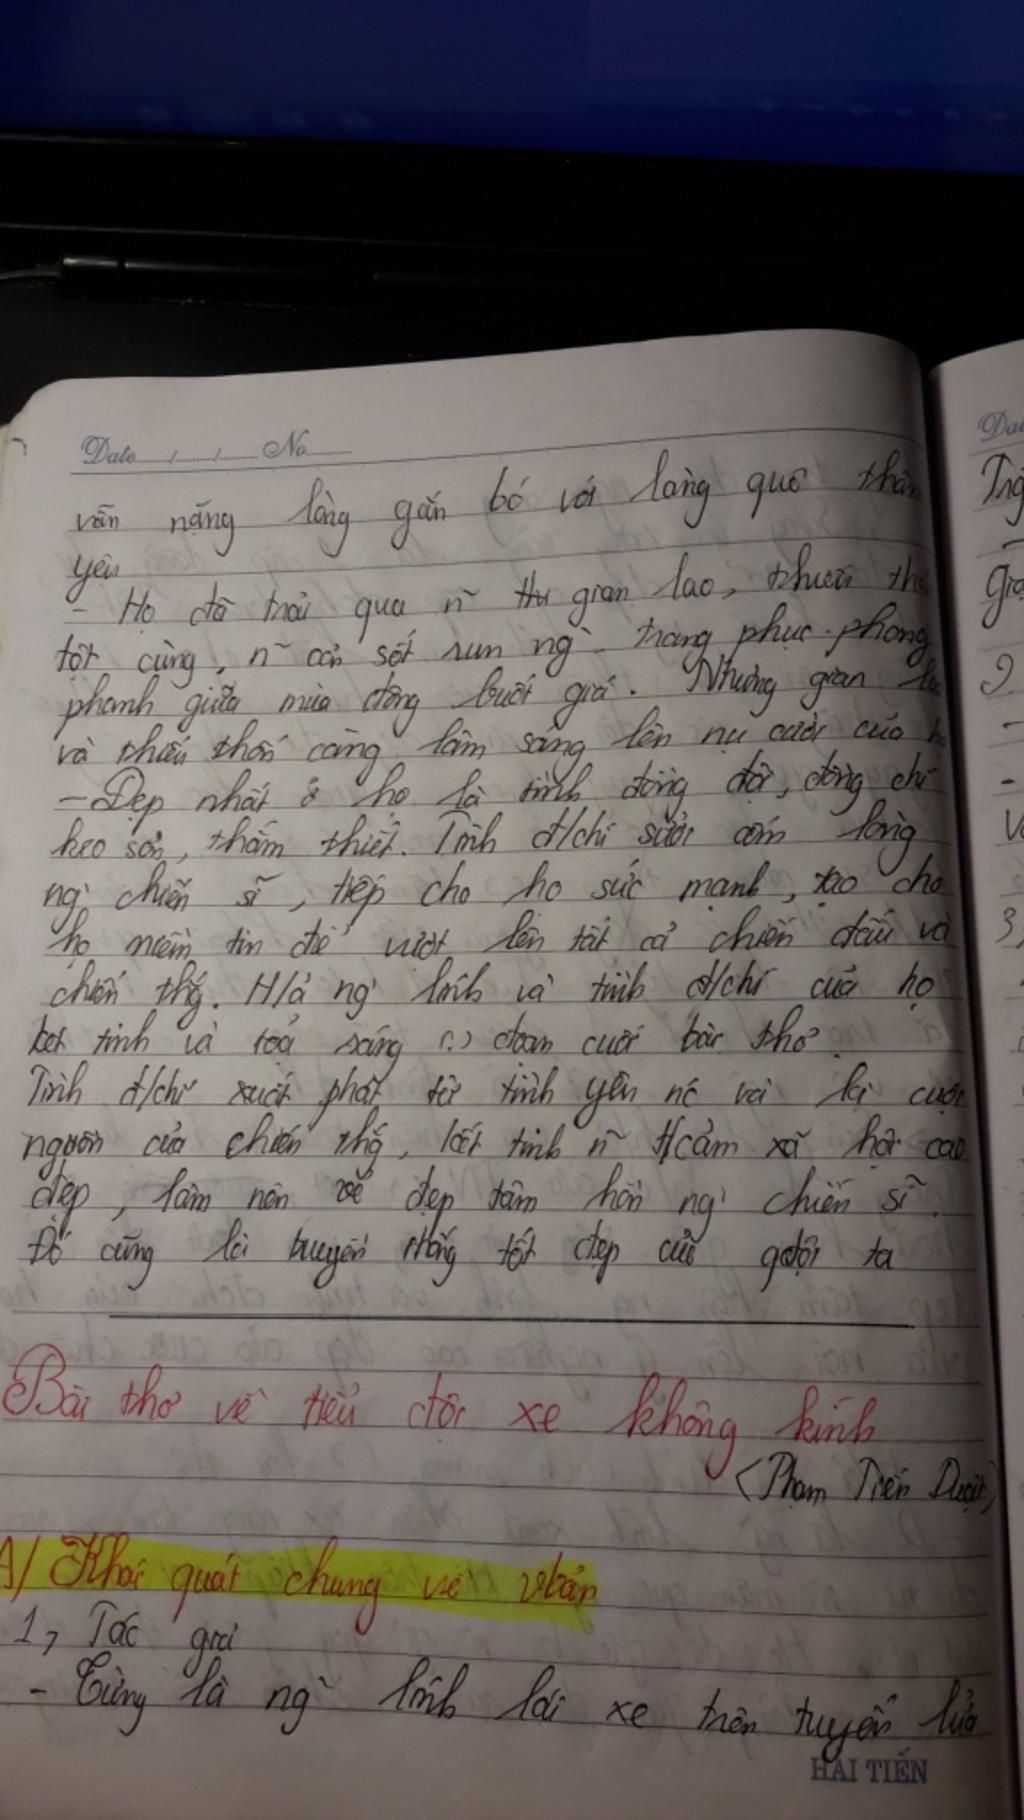 Date / / No
vẫn nặng lòng gắn bó với làng quê thân
yêu
- Họ đã trải qua n~ thg gian lao, thiếu thố
tột cùng, n~ cơn sốt run ng` trang phục phong
phanh giữa mùa đông buốt giá. Nhưng gian lao
và thiếu thốn càng làm sáng lên nụ cười của họ
- Đẹp nhất ở họ là tình đồng đội, đồng chí
keo sơn, thắm thiết. Tình đ/chí sưởi ấm lòng
ng` chiến sĩ, tiếp cho họ sức mạnh, tạo cho
họ niềm tin để vượt lên tất cả chiến đấu và
chiến thg. H/ả ng` lính và tình đ/chí của họ
kết tinh và toả sáng (.) đoạn cuối bài thơ
Tình đ/chí xuất phát từ tình yêu nc và là cuội
nguồn của chiến thg, kết tinh n~ t/cảm xã hội cao
đẹp, làm nên vẻ đẹp tâm hồn ng` chiến sĩ.
Đó cũng là truyền thống tốt đẹp của qđội ta
Bài thơ về tiểu đội xe không kính
(Phạm Tiến Duật)
A/ Khái quát chung về vbản
1, Tác giả
- Từng là ng` lính lái xe trên tuyến lửa
HẢI TIẾN